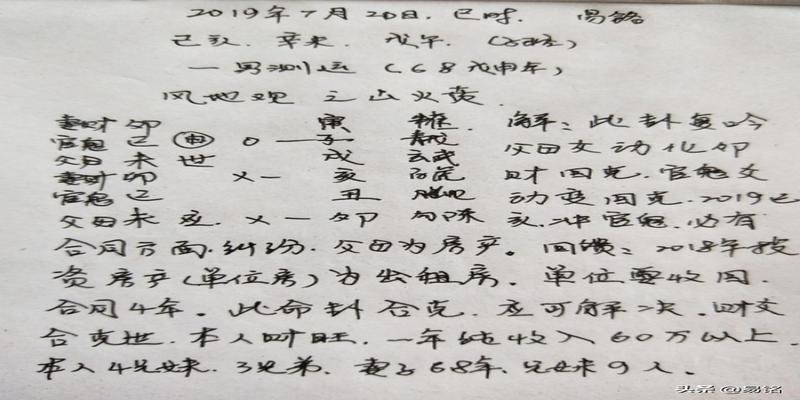 2019年7月20日. 巳时. 易铭
己亥. 辛未. 戊午. (子丑空)
一男测运 (68戊申年)
风地观 之 山火贲
妻财 卯 寅 解: 此卦复吟
官鬼 巳 申 o — 子 青龙 父母爻动化卯
父母 未 世 戌 玄武 财回克. 官鬼爻
妻财 卯 x — 亥 白虎 动变回克. 2019己
官鬼 巳 丑 亥. 冲官鬼. 必有
父母 未 应. x — 卯 勾陈
合同方面. 纠纷. 父母为房产。回馈: 2018年投
资房产(单位房) 为出租房. 单位要收回.
合同4年。此命卦合克. 应可解决. 财爻
合克世. 本人财旺. 一年纯收入60万以上.
本人4兄妹. 3兄弟. 妻子68年. 兄妹9人.
头条 @易铭